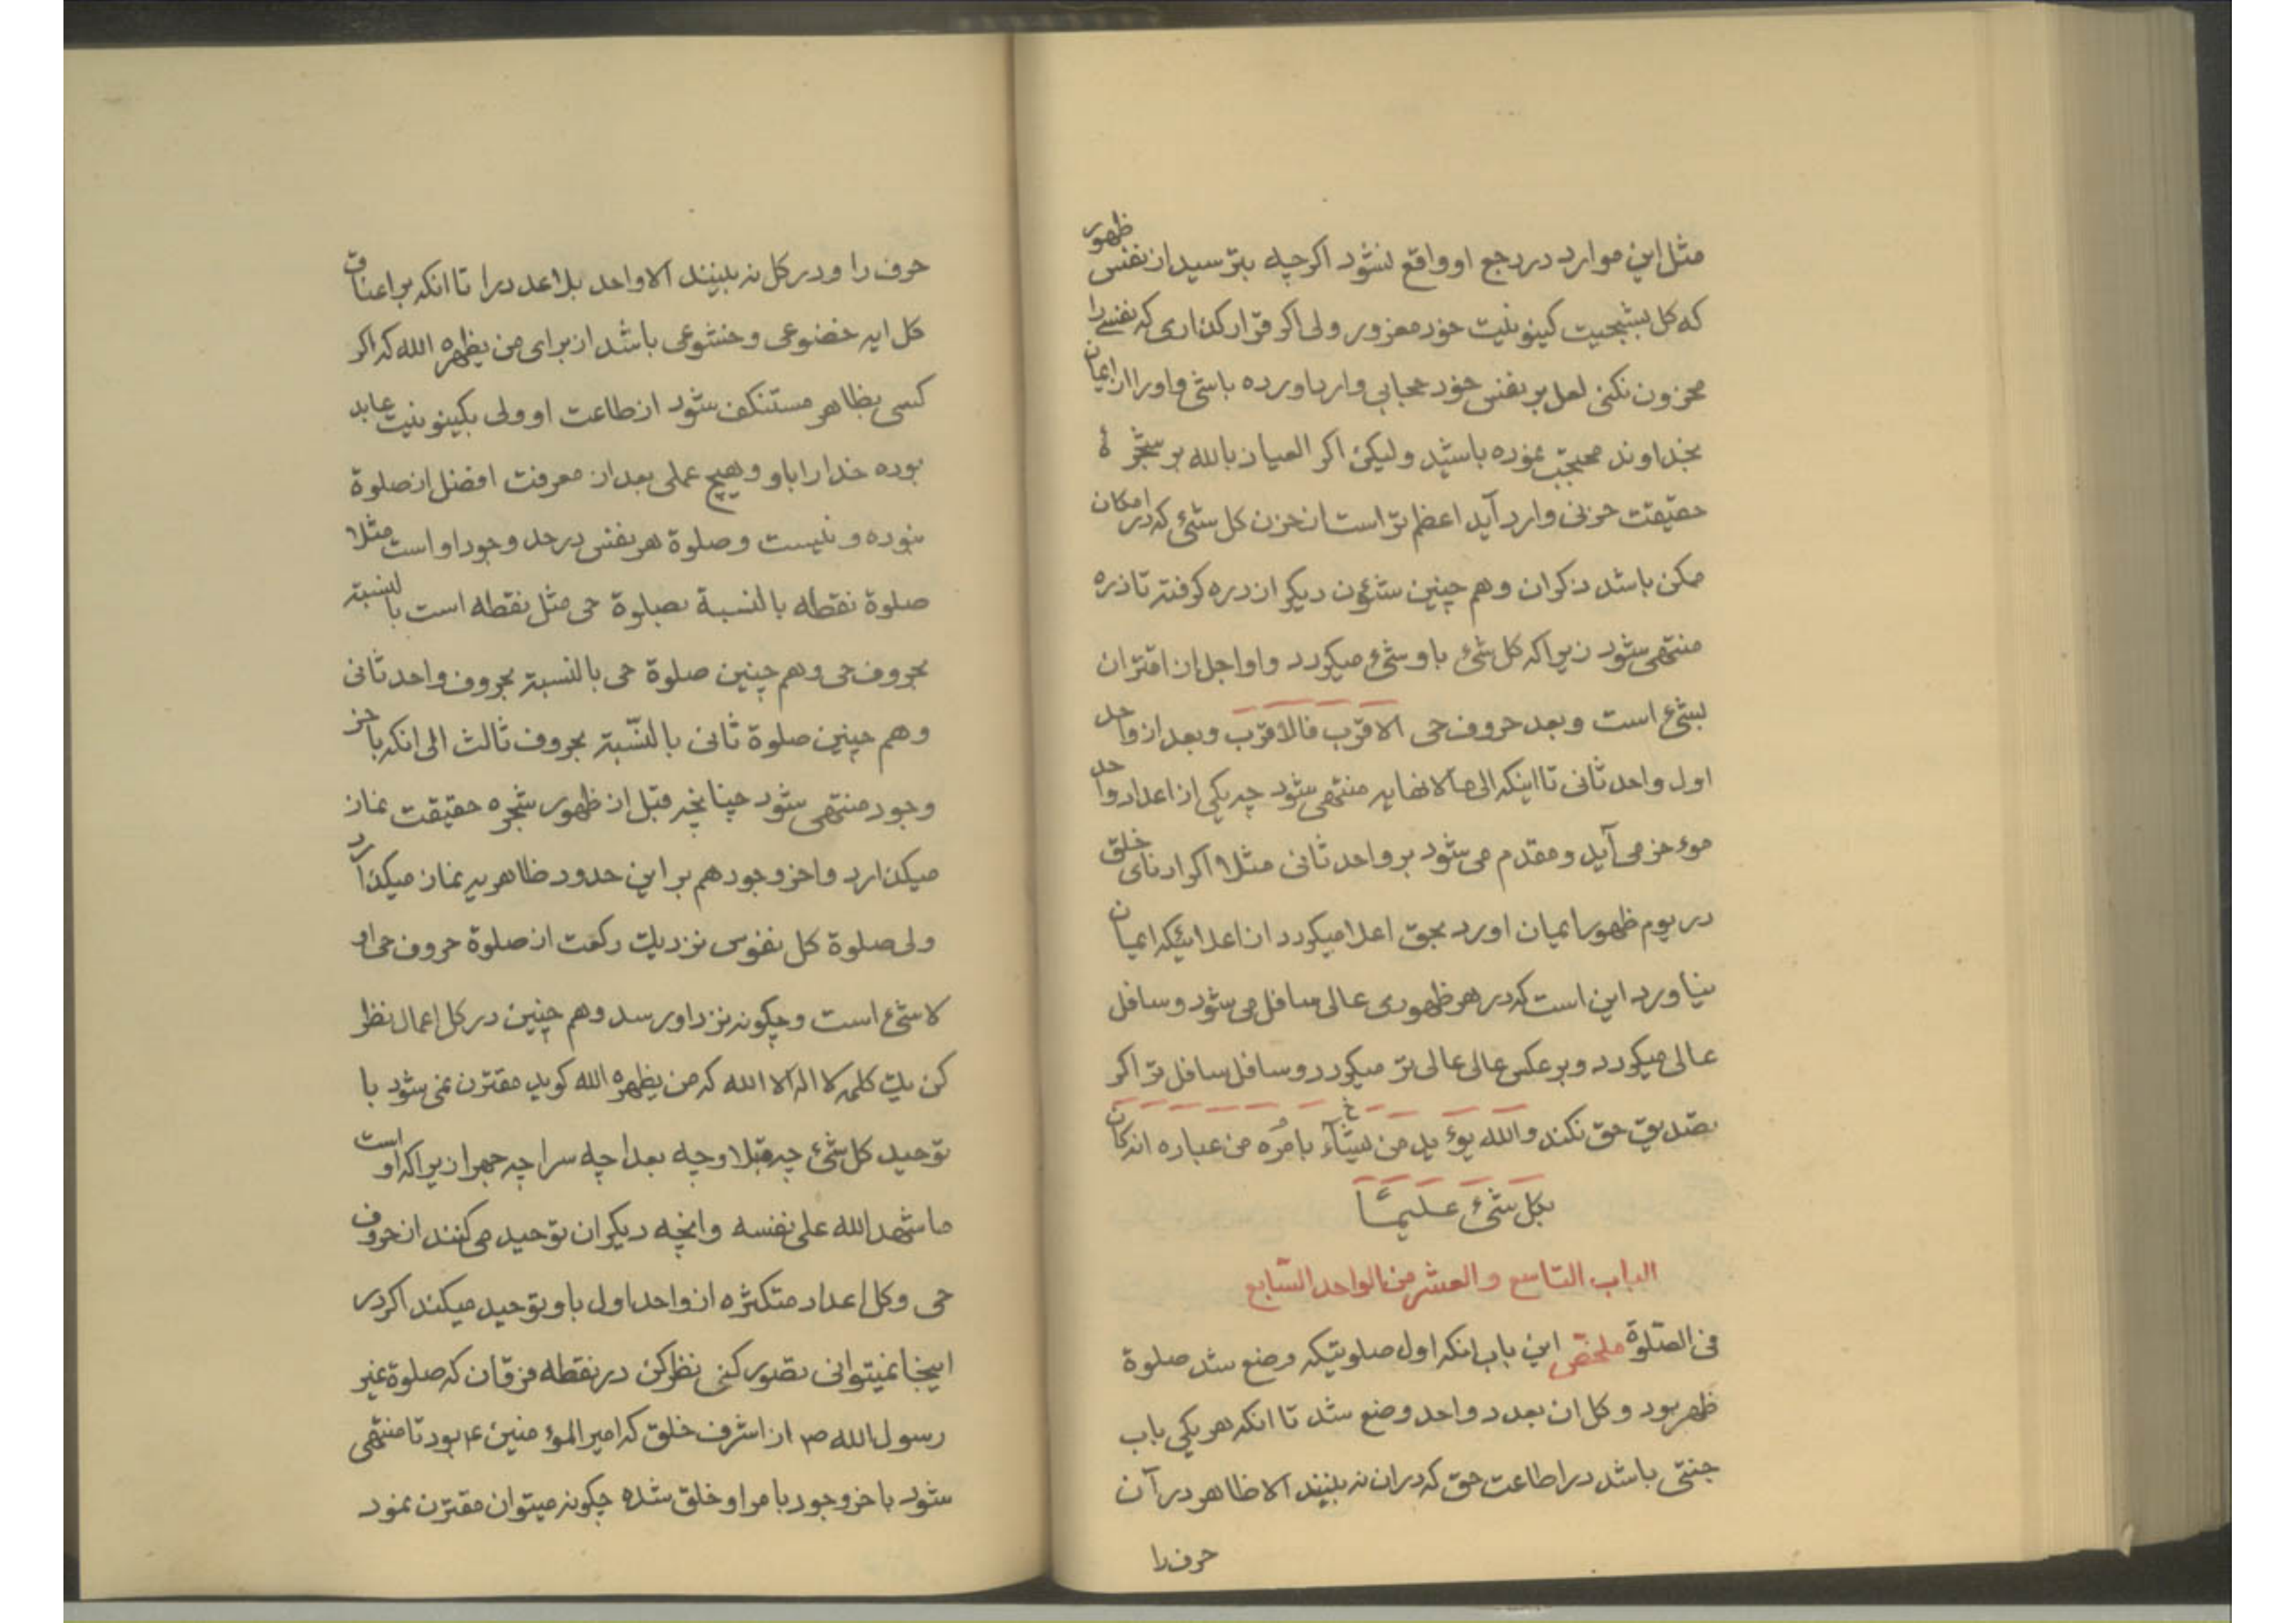 مثل این موارد در رجع او واقع نشود اکرچه بترسید از نفس ظهور
که کل بشبحیت کینونیت خود معزور ولی اکر قرار کذاری که نفسی را
محزون نکنی لعل بر نفس خود حجابی وارد اورده باشی و اورا از ایمان
بخداوند محتجب نموده باشید ولیکن اکر العیاذ بالله بر شجرهٔ
حقیقت حزنی وارد آید اعظم تر است از حزن کل شئ که در امکان
ممکن باشد ذکر ان و هم چنین شئون دیکر از دره کرفته تا ذره
منتهی شود زیرا که کل شئ باو شئ میکردد و او اجل از اقتران
بشئ است و بعد حروف حی الاقرب فالاقرب و بعد از واحد
اول واحد ثانی تا اینکه الی ما لا نهایه منتهی شود چه یکی از اعداد واحد
موءخر می آید و مقدم می شود بر واحد ثانی مثلا اکر ادنای خلق
در یوم ظهور ایمان اورد بحق اعلا میکردد از اعلائیکه ایمان
نیاورد این است که در هر ظهوری عالی سافل می شود و سافل
عالی میکردد و بر عکس عالی عالی تر میکردد و سافل سافل تر اکر
تصدیق حق نکند والله یوءید من یشآء بامره من عباده انه کان
بکل شئ علیمًا
الباب التاسع و العشر من الواحد السّابع
فی الصّلوة ملخص این باب انکه اول صلوتیکه وضع شد صلوة
ظهر بود و کل ان بعدد واحد وضع شد تا انکه هر یکی باب
جنتی باشد در اطاعت حق که در ان نه بینند الا ظاهر در آن
حرف را
حرف را و در کل نه بینند الا واحد بلا عدد را تا انکه بر اعناق
کل ایه خضوعی و خشوعی باشد از برای من یظهره الله که اکر
کسی بظاهر مستنکف شود از طاعت او ولی بکینونیت عابد
بوده خدا را باو و هیچ عملی بعد از معرفت افضل از صلوة
نبوده و نیست و صلوة هر نفس در حد وجود او است مثلا
صلوة نقطه بالنسبة بصلوة حی مثل نقطه است بالنسبته
بحروف حی و هم چنین صلوة حی بالنسبته بحروف واحد ثانی
و هم چنین صلوة ثانی بالنّسبته بحروف ثالث الی انکه باخر
وجود منتهی شود چنانچه قبل از ظهور شجره حقیقت نماز
میکذارد و اخر وجود هم بر این حدود ظاهریه نماز میکذارد
ولی صلوة کل نفوس نزد یک رکعت از صلوة حروف حی او
لا شئ است و چکونه نزد او رسد و هم چنین در کل اعمال نظر
کن یک کلمه لا اله الا الله که من یظهره الله کوید مقترن نمی شود با
توحید کل شئ چه قبلا و چه بعدا چه سرا چه جهرا زیرا که او است
ما شهد الله علی نفسه و انچه دیکران توحید می کنند از حروف
حی و کل اعداد متکثره از واحد اول باو توحید میکند اکر در
اینجا نمیتوانی تصور کنی نظر کن در نقطه فرقان که صلوة غیر
رسول الله ص از اشرف خلق که امیر الموءمنین ع بود تا منتهی
شود باخر وجود بامر او خلق شده چکونه میتوان مقترن نمود